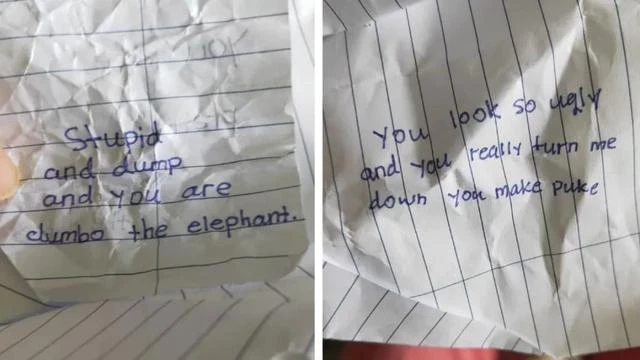 Stupid
and dump
and you are
dumbo the elephant.
you look so ugly
and you really turn me
down you make puke